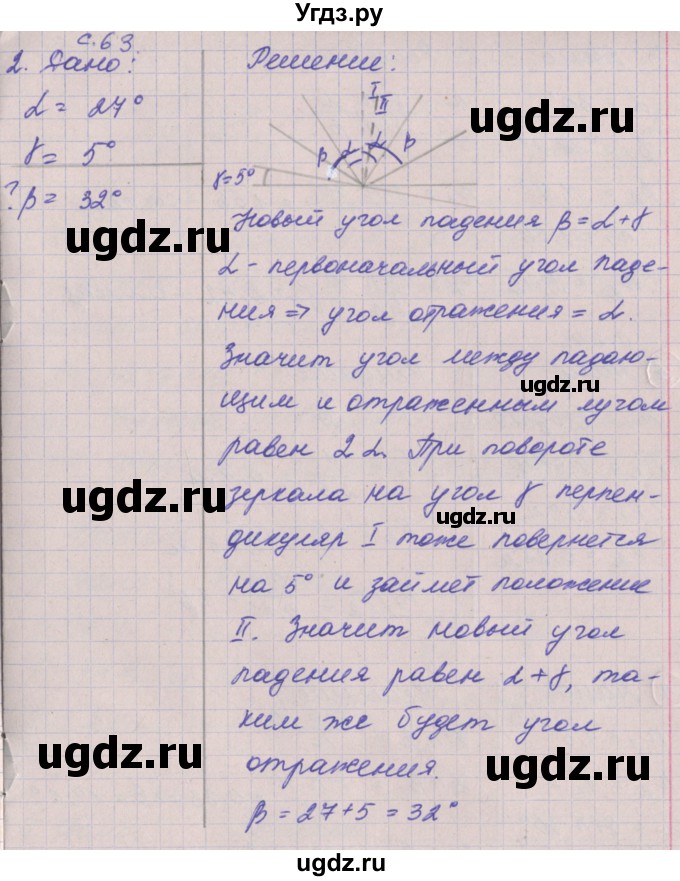 Угдз.ру
с.63
2. Дано:
α = 27°
γ = 5°
? β = 32°
Решение:
I
II
β α α β
γ=5°
ugdz.ru
ugdz.ru
Новый угол падения β = α+γ
α - первоначальный угол паде-
ния => угол отражения = α.
Значит угол между падаю-
ugdz.ru
щим и отраженным лучом
равен 2α. При повороте
ugdz.ru
зеркала на угол γ перпен-
ugdz.ru
дикуляр I тоже повернется
на 5° и займет положение
II. Значит новый угол
падения равен α+γ, та-
ким же будет угол
ugdz.ru
отражения.
ugdz.ru
β = 27+5 = 32°
ugdz.ru